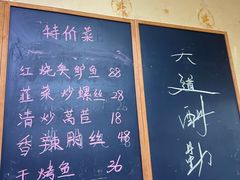 特价菜
红烧头鲈鱼 88
韭菜炒螺丝 28
清炒莴苣 18
香辣肠丝 48
干烤鱼 36
天道酬勤